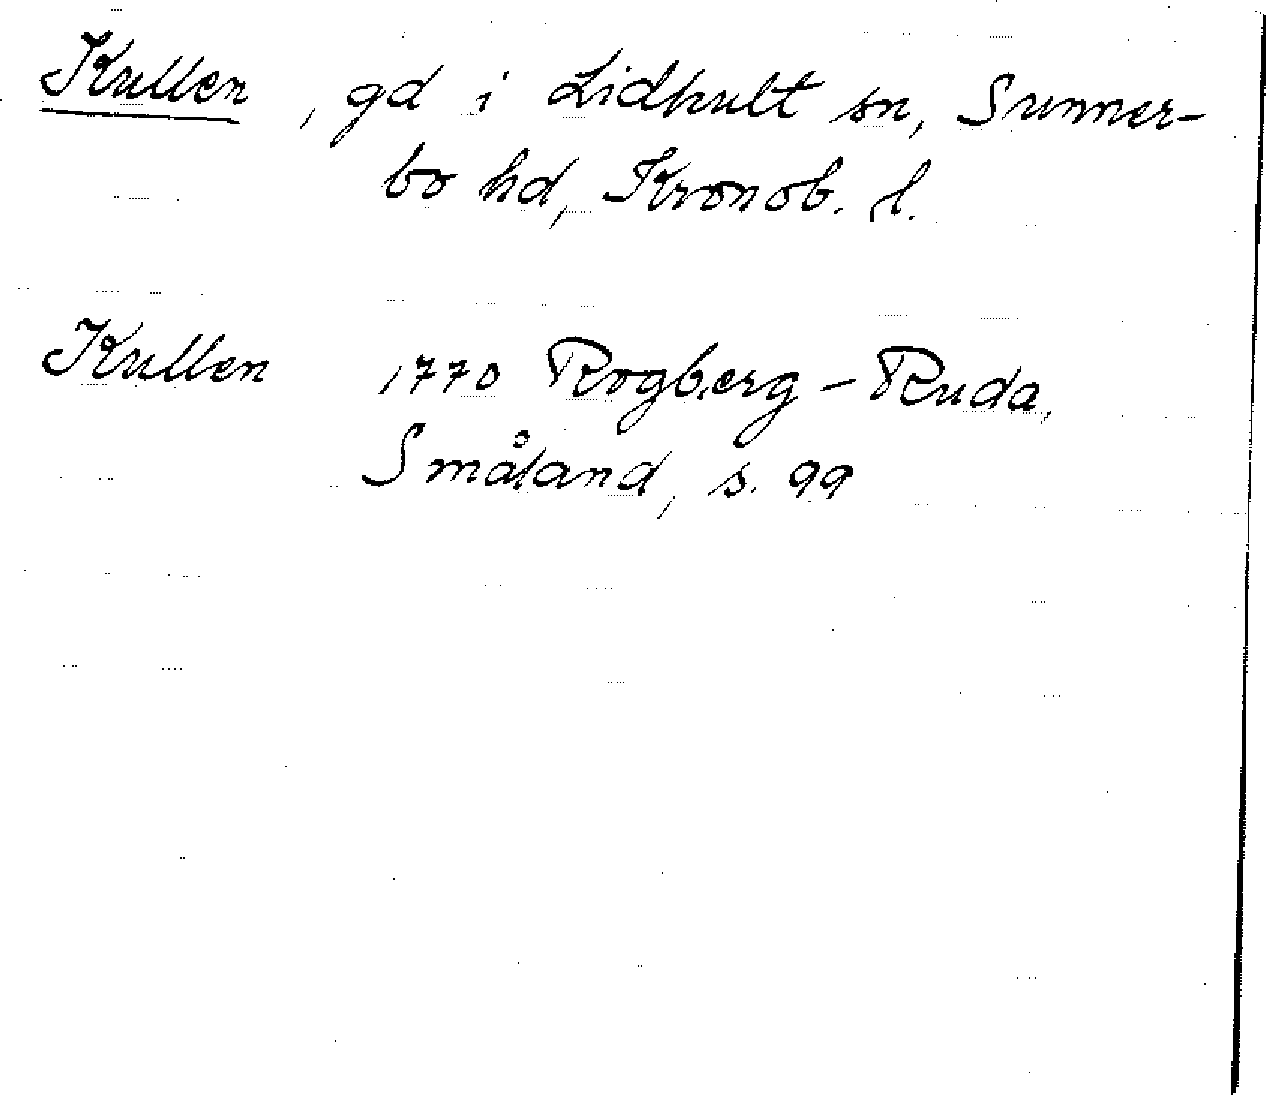 Kullen, gd i Lidhult sn, Sunner-
bo hd, Kronob. l.
Kullen 1770 Rogberg - Ruda,
Småland, s. 99